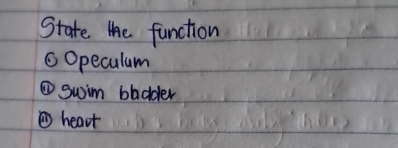 State the function
① Opeculum
② swim bladder
③ heart